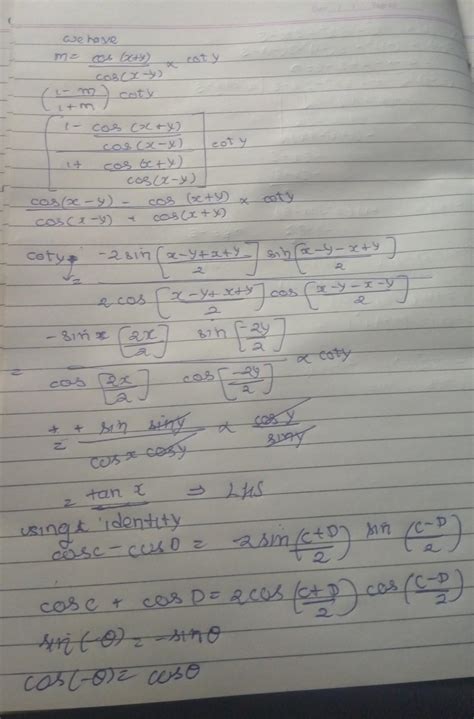 we have
m = cos(x+y)/cos(x-y) × coty
(1-m/1+m) coty
[1 - cos(x+y)/cos(x-y) / 1+ cos(x+y)/cos(x-y)] coty
cos(x-y) - cos(x+y) / cos(x-y) + cos(x+y) × coty
coty = -2sin[x-y+x+y/2] sin[x-y-x+y/2] / 2cos[x-y+x+y/2] cos[x-y-x-y/2]
= -sin x [2x/2] sin[-2y/2] / cos[2x/2] cos[-2y/2] × coty
= + sin siny / cosx cosy × cosy / siny
= tan x ⇒ LHS
using identity
cosc - cosD = 2sin(C+D/2) sin(C-D/2)
cosC + cosD = 2cos(C+D/2) cos(C-D/2)
sin(-θ) = -sinθ
cos(-θ) = cosθ